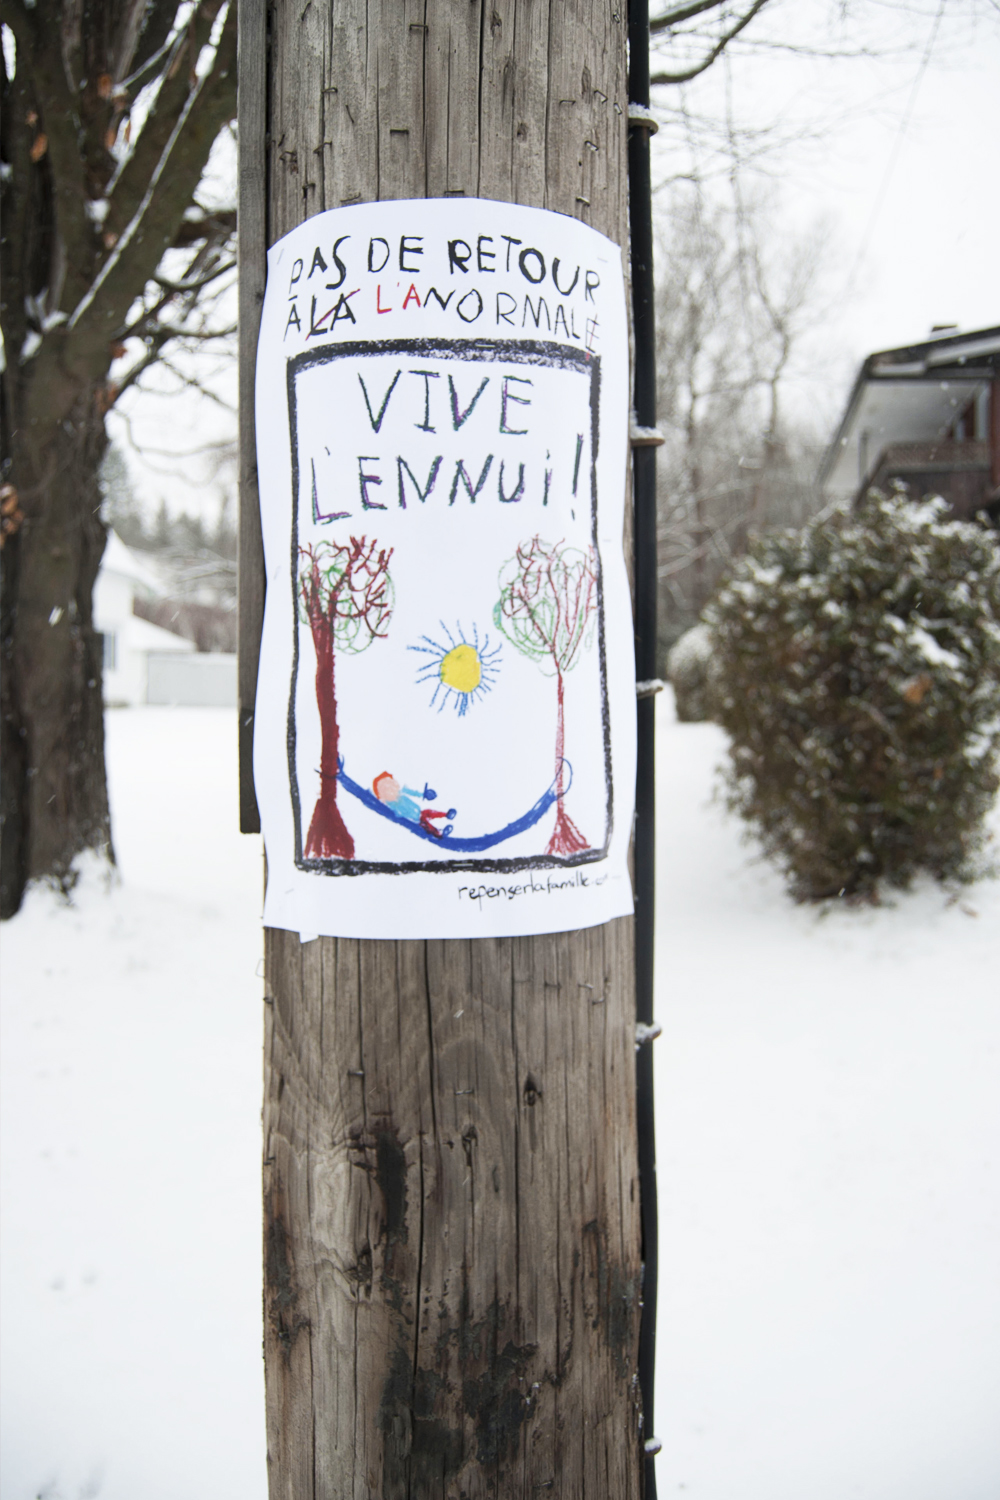 PAS DE RETOUR
À LA L'ANORMALE
VIVE
L'ENNUi!
repenserlafamille.com